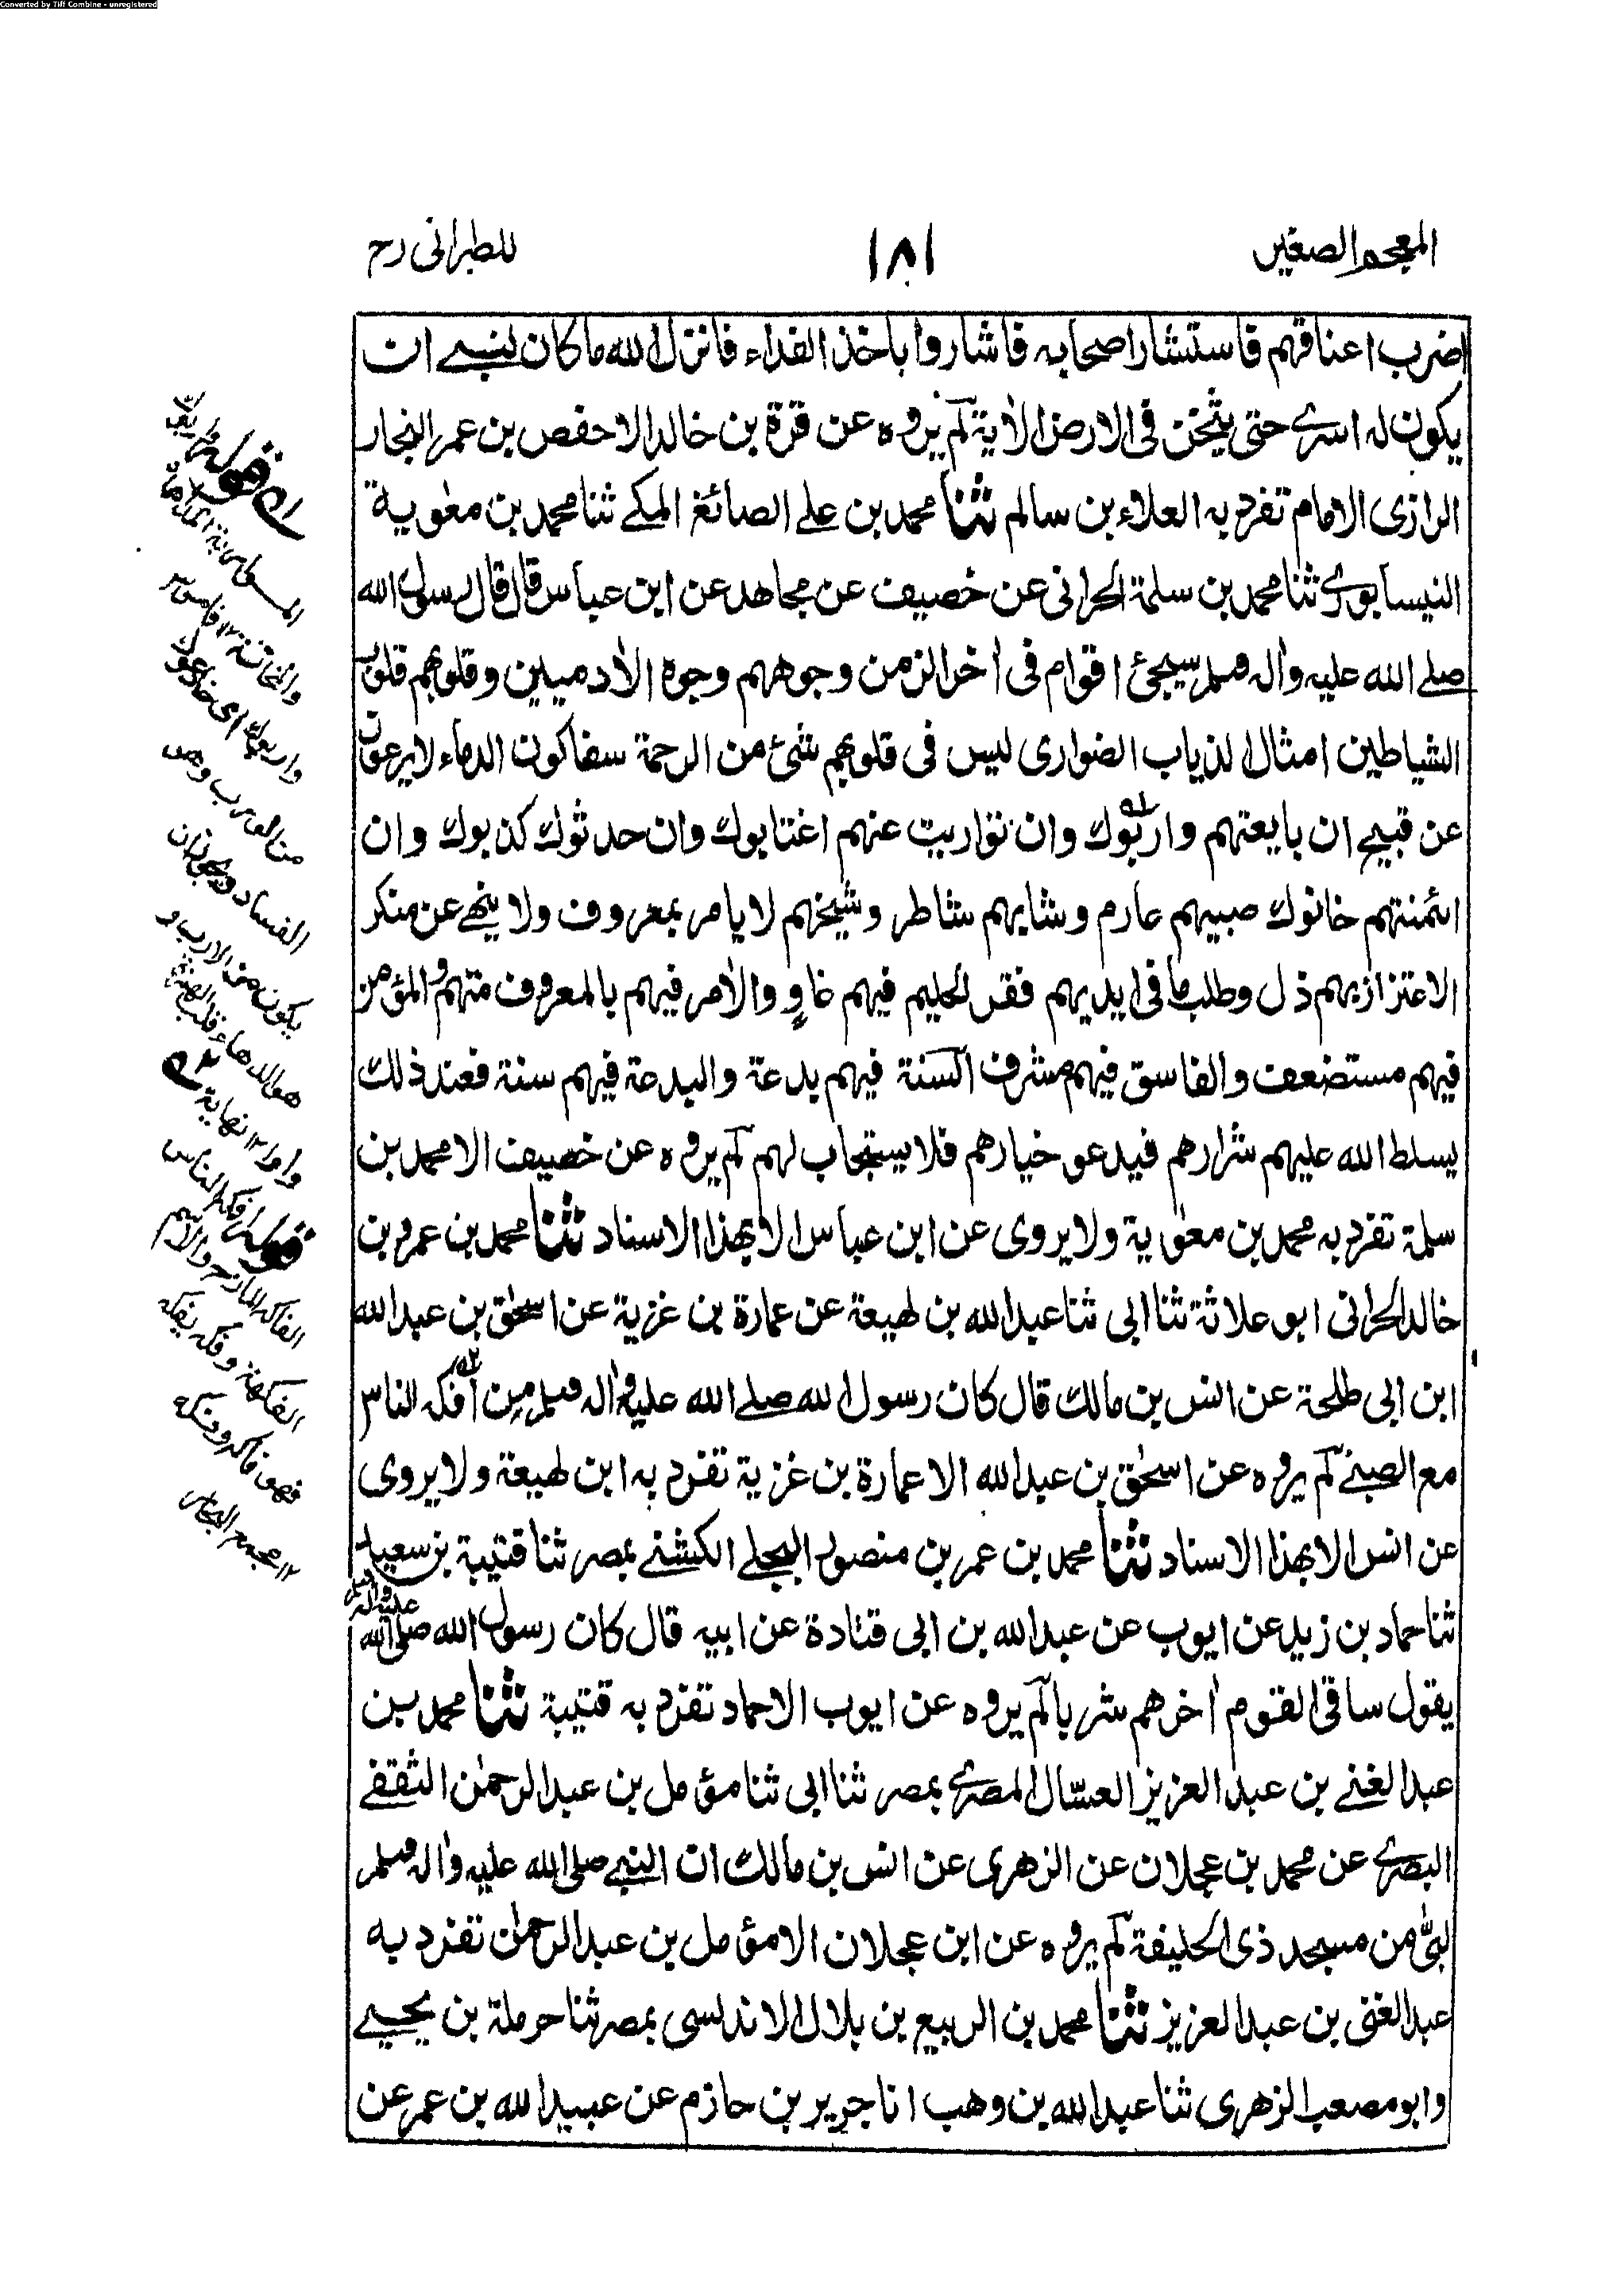 Converted by Tiff Combine - unregistered
المعجم الصغير
١٨١
للطبرانی رح
اضرب اعناقهم فاستشار اصحابه فاشاروا باخذ الفداء فانزل الله ما كان لنبے ان
يكون له اسرے حتی يثخن فی الارض الاٰية لم يروه عن قرة بن خالد الا حفص بن عمر النجار
الرازی الامام تفرد به العلاء بن سالم ثنا محمد بن علے الصائغ المكے ثنا محمد بن معٰوية
النيسابورے ثنا محمد بن سلمة الحرانی عن خصيف عن مجاهد عن ابن عباس قال قال رسول الله
صلے الله عليه واٰله وسلم سيجئ اقوام فی اٰخر الزمن وجوههم وجوه الاٰدميين وقلوبهم قلوب
الشياطين امثال الذياب الضواری ليس فی قلوبهم شئ من الرحمة سفاكون الدماء لا يرعون
عن قبيح ان بايعتهم واربوك وان تواريت عنهم اغتابوك وان حدثوك كذبوك وان
ائمنتهم خانوك صبيهم عارم وشابهم شاطر وشيخهم لا يامر بمعروف ولا ينهے عن منكر
الاعتزاز بهم ذل وطلب ما فی ايديهم فقر الحليم فيهم غاوٍ والاٰمر فيهم بالمعروف متهم والمؤمن
فيهم مستضعف والفاسق فيهم مشرف السنة فيهم بدعة والبدعة فيهم سنة فعند ذلك
يسلط الله عليهم شرارهم فيدعو خيارهم فلا يستجاب لهم لم يروه عن خصيف الا محمد بن
سلمة تفرد به محمد بن معٰوية ولا يروی عن ابن عباس الا بهذا الاسناد ثنا محمد بن عمرو بن
خالد الحرانی ابو علاثة ثنا ابی ثنا عبد الله بن لهيعة عن عمارة بن غزية عن اسحٰق بن عبد الله
ابن ابی طلحة عن انس بن مالك قال كان رسول الله صلے الله عليه واٰله وسلم من افكه الناس
مع الصبے لم يروه عن اسحٰق بن عبد الله الا عمارة بن غزية تفرد به ابن لهيعة ولا يروی
عن انس الا بهذا الاسناد ثنا محمد بن عمر بن منصور البجلے الكشنے بمصر ثنا قتيبة بن سعيد
ثنا حماد بن زيد عن ايوب عن عبد الله بن ابی قتادة عن ابيه قال كان رسول الله صلی الله عليه واٰله وسلم
يقول ساقی القوم اٰخرهم شربا لم يروه عن ايوب الا حماد تفرد به قتيبة ثنا محمد بن
عبد الغنے بن عبد العزيز العسّال المصرے بمصر ثنا ابی ثنا مؤمل بن عبد الرحمٰن الثقفے
البصرے عن محمد بن عجلان عن الزهری عن انس بن مالك ان النبے صلی الله عليه واٰله وسلم
لبّٰی من مسجد ذی الحليفة لم يروه عن ابن عجلان الا مؤمل بن عبد الرحمٰن تفرد به
عبد الغنی بن عبد العزيز ثنا محمد بن الربيع بن بلال الاندلسی بمصر ثنا حرملة بن يحيے
وابو مصعب الزهری ثنا عبد الله بن وهب انا جرير بن حازم عن عبيد الله بن عمر عن
قوله
والخاتنة ١٢ قاموس
واربوك ای خادعوك
من الورب وهو
الفساد ويجوز ان
يكون من الارب و
هو الدهاء وقلب الهمزة
واوا ١٢ نهاية
قوله افكه الناس
الفاكه المازح والاسم
الفكهة وفكه يفكه
فهو فاكه وفكه
١٢ مجمع البحار